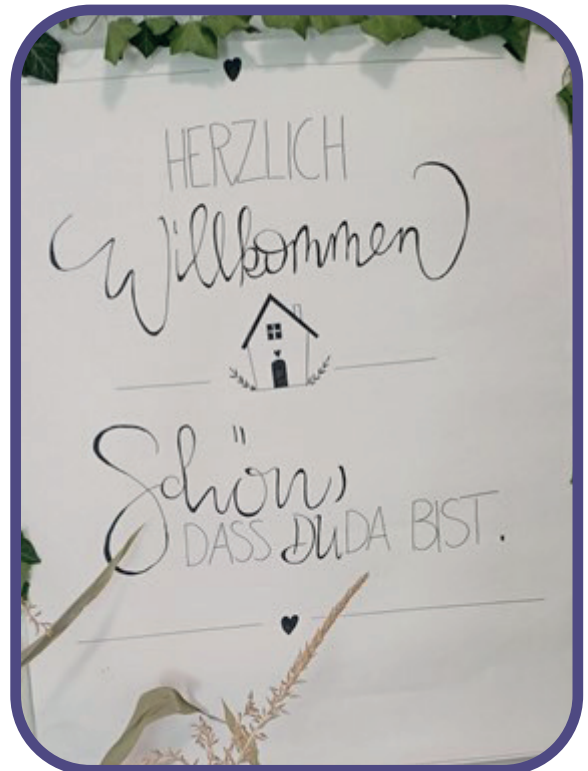 HERZLICH
Willkommen
Schön,
DASS DU DA BIST.